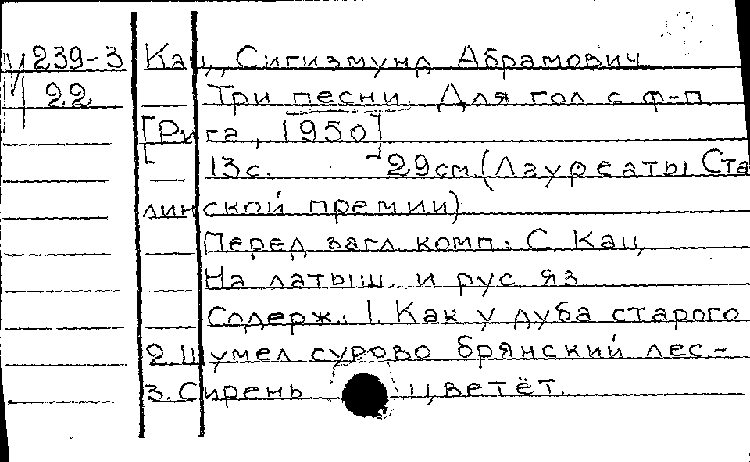 239-3 Кац, Сигизмунд Абрамович
22 Три песни. Для гол с ф-п
[Рига, 1950]
13 с. 29 см. (Лауреаты Ста
линской премии)
Перед загл. комп.: С. Кац
На латыш. и рус яз
Содерж.: 1. Как у дуба старого
2. Шумел сурово брянский лес-
3. Сирень цветёт.